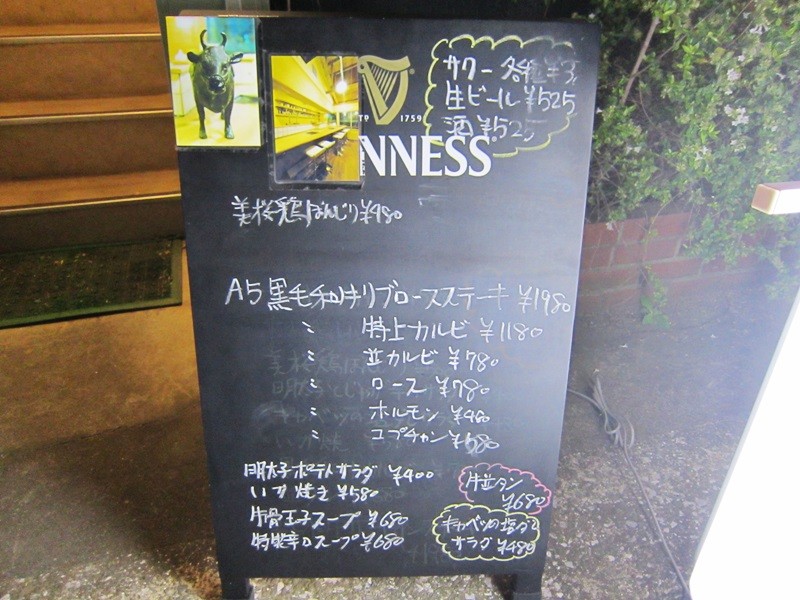 サワー 各種 ¥3
生ビール ¥525
酒 ¥525
TD 1759
NNESS
美桜鶏ぼんじり ¥480
A5黒毛和牛リブロースステーキ ¥1980
〃 特上カルビ ¥1180
〃 並カルビ ¥780
〃 ロース ¥780
〃 ホルモン ¥480
〃 コプチャン ¥680
明太子ポテトサラダ ¥400
いか焼き ¥580
牛骨玉子スープ ¥680
特製辛口スープ ¥680
牛並タン
¥680
キャベツの塩ダレ
サラダ ¥480